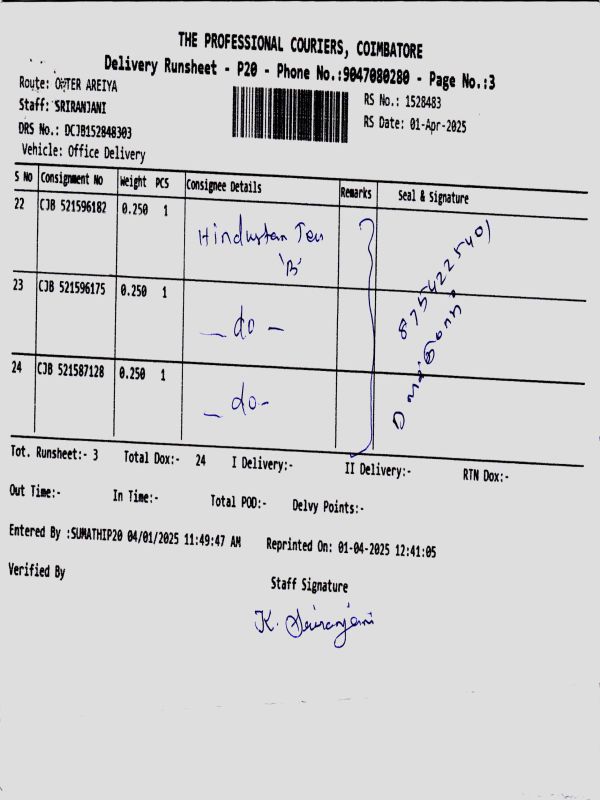 THE PROFESSIONAL COURIERS, COIMBATORE
Delivery Runsheet - P20 - Phone No.:9047080280 - Page No.:3
Route: OUTER AREIYA
Staff: SRIRANJANI
DRS No.: DCJB152848303
Vehicle: Office Delivery
RS No.: 1528483
RS Date: 01-Apr-2025
S No Consignment No Weight PCS Consignee Details Remarks Seal & Signature
22 CJB 521596182 0.250 1 Hindustan
'B'
23 CJB 521596175 0.250 1 - do -
24 CJB 521587128 0.250 1 - do -
8754225401
Tot. Runsheet:- 3 Total Dox:- 24 I Delivery:- II Delivery:- RTN Dox:-
Out Time:- In Time:- Total POD:- Delvy Points:-
Entered By :SUMATHIP20 04/01/2025 11:49:47 AM Reprinted On: 01-04-2025 12:41:05
Verified By Staff Signature
K. Sriranjani